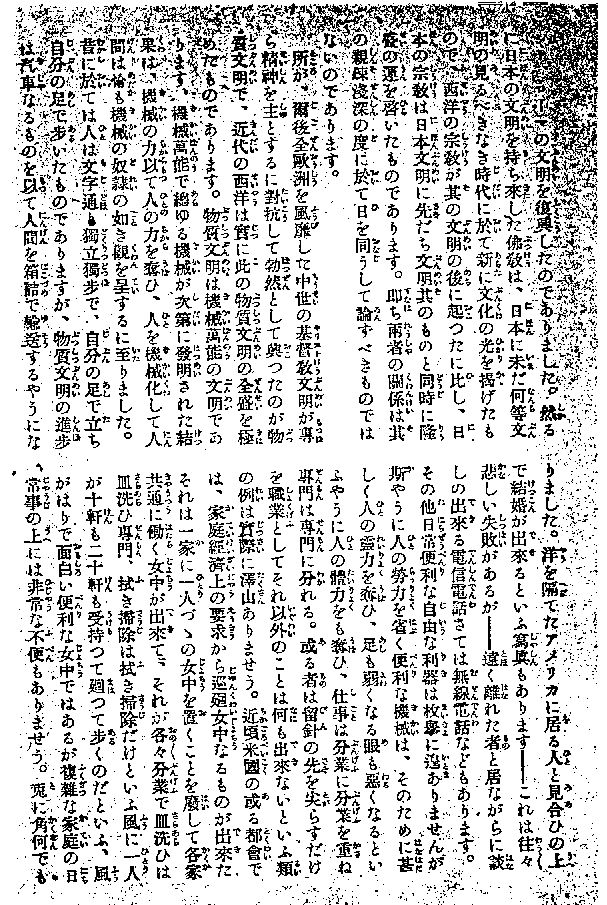 の文明を復興したのでありました。然る
に日本の文明を持ち來した佛敎は、日本に未だ何等文
明の見るべきなき時代に於て新に文化の光を揭げたも
ので、西洋の宗敎が其の文明の後に起つたに比し、日
本の宗敎は日本文明に先だち文明其のものと同時に隆
盛の運を啓いたものであります。卽ち兩者の關係は其
の親疎淺深の度に於て日を同うして論ずべきものでは
ないのであります。
所が、爾後全歐洲を風靡した中世の基督敎文明が專
ら精神を主とするに對抗して勃然として興つたのが物
質文明で、近代の西洋は實に此の物質文明の全盛を極
めたものであります。物質文明は機械萬能の文明であ
ります。機械萬能で總ゆる機械が次第に發明された結
果は、機械の力以て人の力を奪ひ、人を機械化して人
間は恰も機械の奴隸の如き觀を呈するに至りました。
昔に於ては人は文字通り獨立獨步で、自分の足で立ち
自分の足で步いたものでありますが、物質文明の進步
は汽車なるものを以て人間を箱詰で輸送するやうにな
りました。洋を隔てたアメリカに居る人と見合ひの上
で結婚が出來るといふ寫眞もあります――これは往々
悲しい失敗があるが――遠く離れた者と居ながらに談
しの出來る電信電話さては無線電話などもあります。
その他日常便利な自由な利器は枚擧に遑ありませんが
斯やうに人の勞力を省く便利な機械は、そのために甚
しく人の靈力を奪ひ、足も弱くなる眼も惡くなるとい
ふやうに人の體力をも奪ひ、仕事は分業に分業を重ね
專門は專門に分れる。或る者は留針の先を尖らすだけ
を職業としてそれ以外のことは何も出來ないといふ類
の例は實際に澤山ありませう。近頃米國の或る都會で
は、家庭經濟上の要求から巡廻女中なるものが出來た
それは一家に一人づゝの女中を置くことを廢して各家
共通に働く女中が出來て、それが各々分業で皿洗ひは
皿洗ひ專門、拭き掃除は拭き掃除だけといふ風に一人
が十軒も二十軒も受持つて廻つて步くのだといふ、風
がはりで面白い便利な女中ではあるが複雜な家庭の日
常事の上には非常な不便もありませう。兎に角何でも